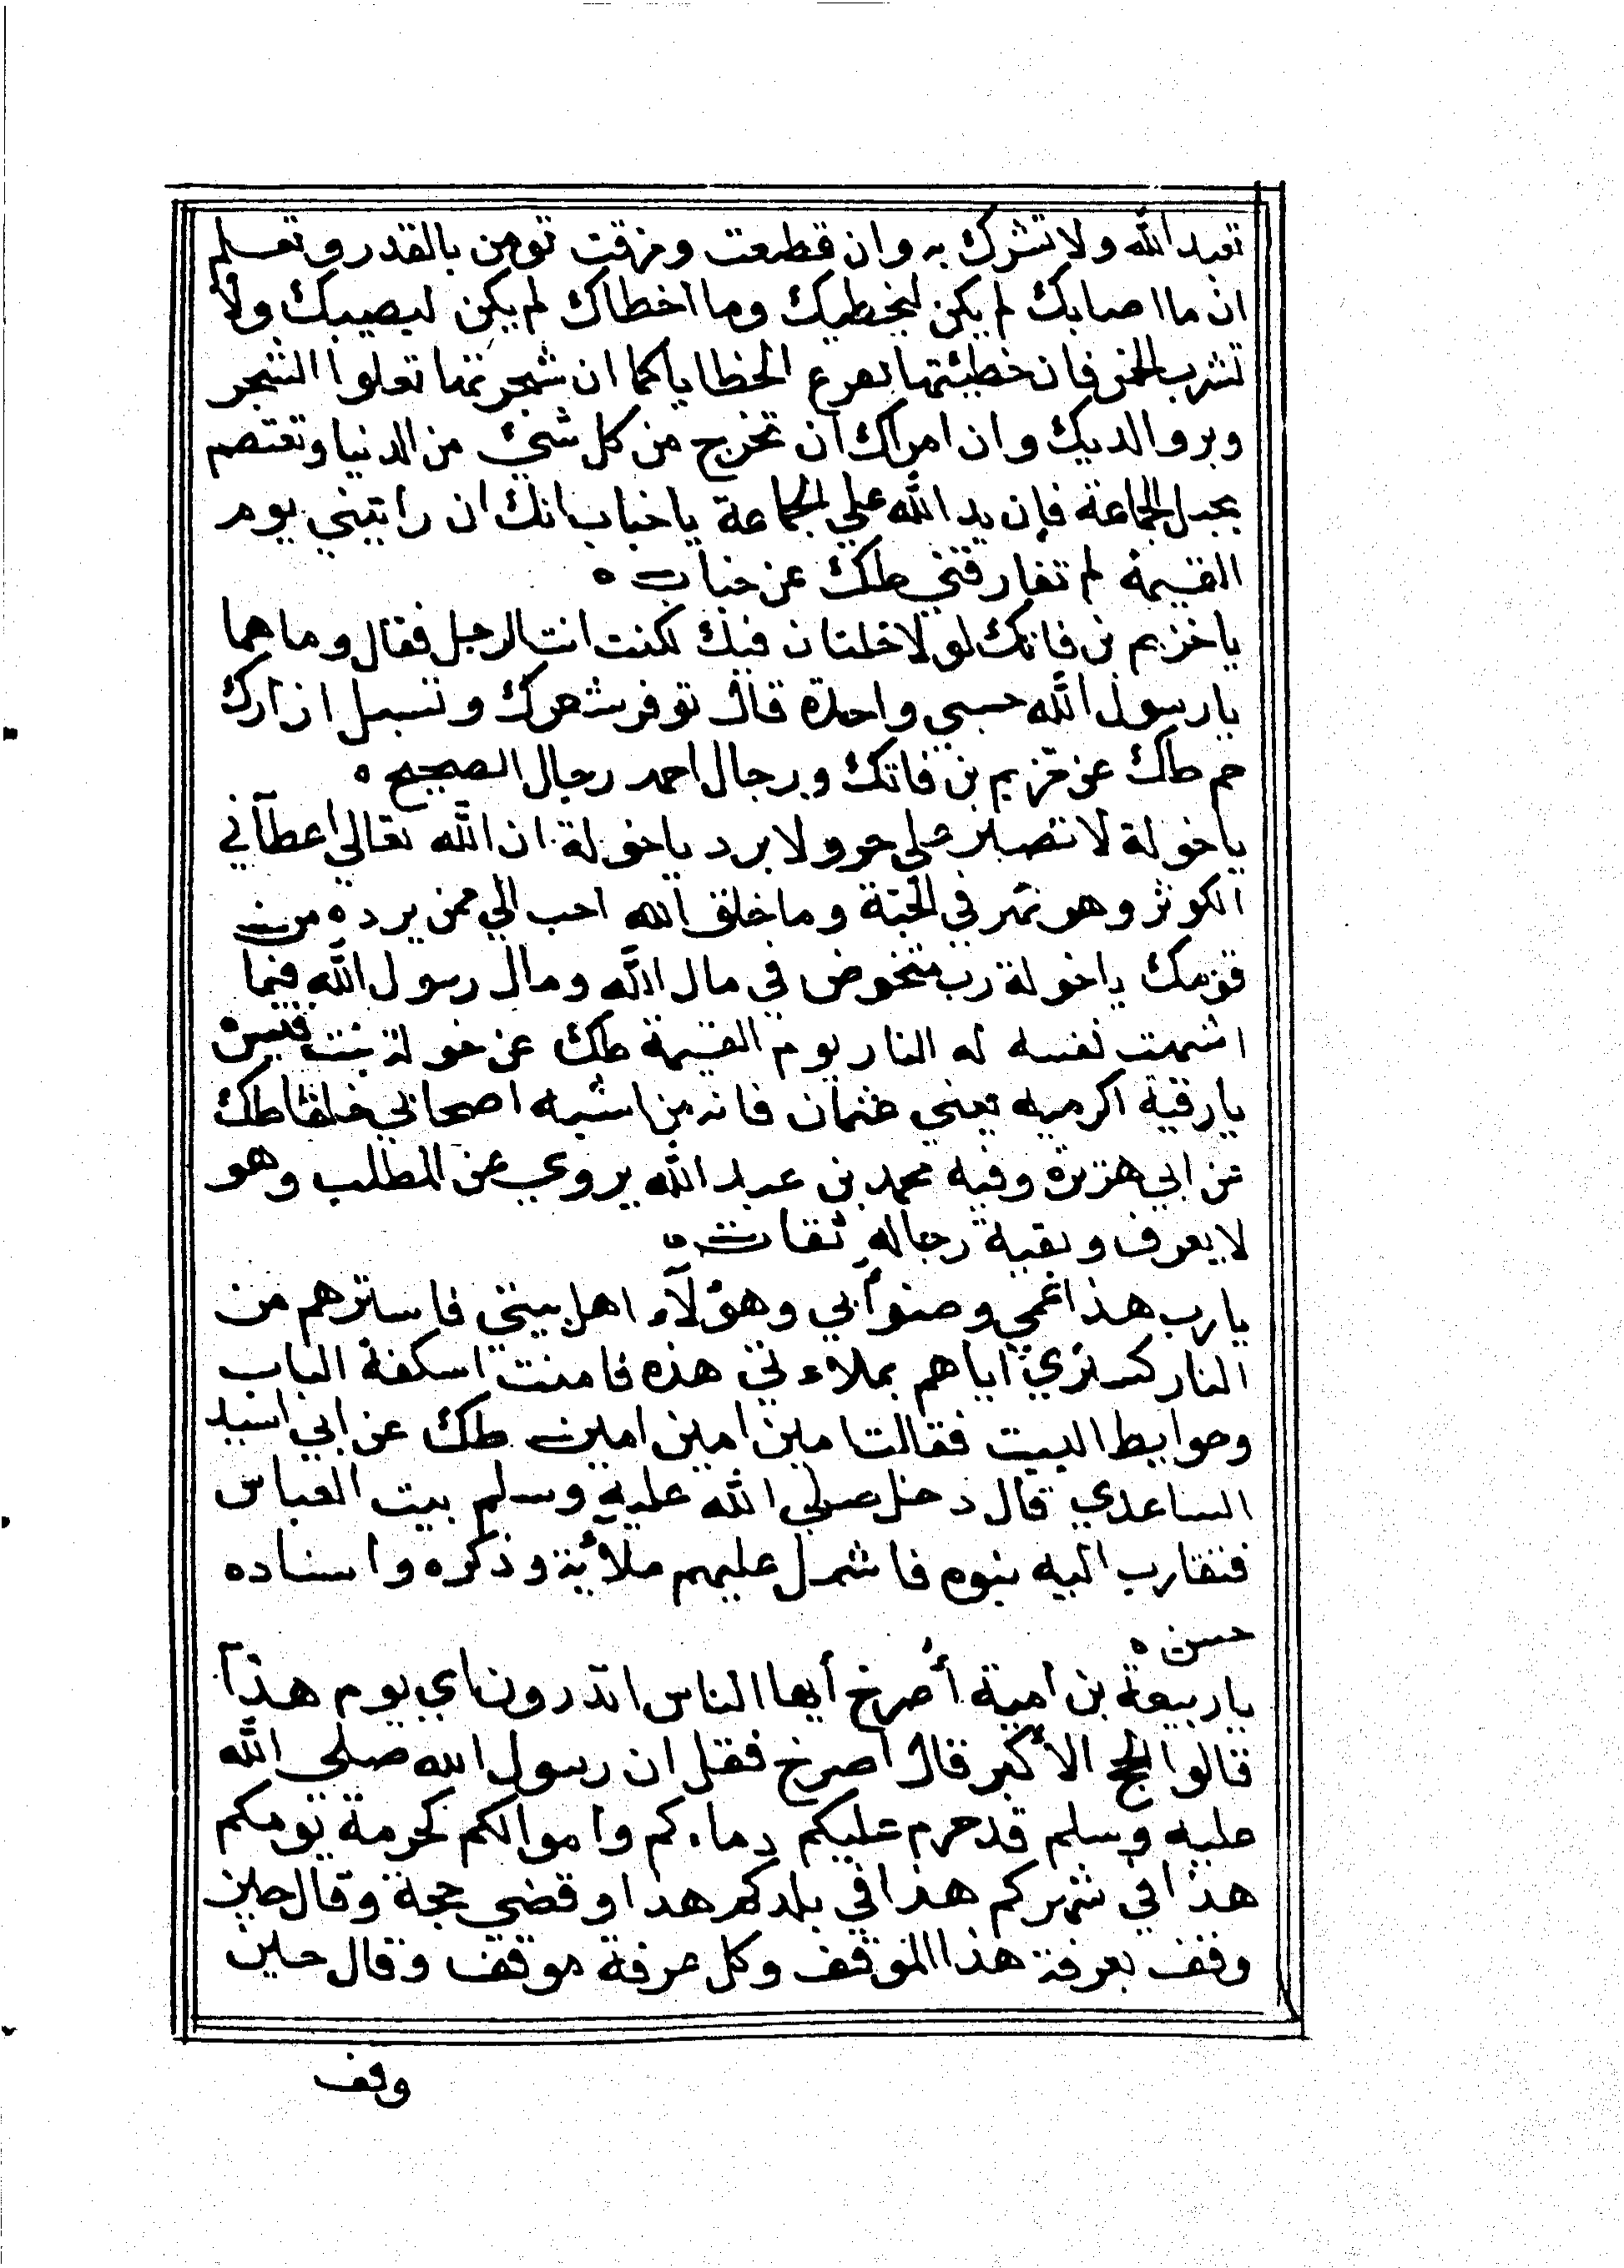 تعبد الله ولا تشرك به وان قطعت ومزقت تومن بالقدر وتعلم
ان ما اصابك لم يكن ليخطيك وما اخطاك لم يكن ليصيبك ولا
تشرب الخمر فان خطيئتها تفرع الخطايا كما ان شجرتها تعلوا الشجر
وبر والديك وان امراك ان تخرج من كل شيء من الدنيا وتعتصم
بحبل الجماعة فإن يد الله علي الجماعة يا خباب انك ان رايتني يوم
القيمة لم تفارقني طك عن خباب ه
يا خزيم بن فاتك لولا خلتان فيك لكنت انت الرجل فقال وما هما
يا رسول الله حسبي واحدة قال توفر شعرك وتسبل ازارك
حم طك عن خزيم بن فاتك ورجال احمد رجال الصحيح ه
يا خولة لا تصبر علي حر ولا برد يا خولة ان الله تعالي اعطاني
الكوثر وهو نهر في الجنة وما خلق الله احب الي ممن يرده من
قومك يا خولة رب متخوض في مال الله ومال رسول الله فيما
اشتهت نفسه له النار يوم القيمة طك عن خولة بنت قيس ه
يا رقية اكرميه يعني عثمان فانه من اشبه اصحابي خلقا طك
عن ابي هريرة وفيه محمد بن عبد الله يروي عن المطلب وهو
لا يعرف وبقية رجاله ثقات ه
يا رب هذا عمي وصنو أبي وهؤلآء اهل بيتي فاسترهم من
النار كستري اياهم بملاءتي هذه فامنت اسكفة الباب
وحوايط البيت فقالت امين امين امين طك عن ابي اسيد
الساعدي قال دخل صلي الله عليه وسلم بيت العباس
فتقارب اليه بنوه فاشمل عليهم ملائية وذكره واسناده
حسن ه
يا ربيعة بن امية أصرخ أيها الناس اتدرون اي يوم هذا
قالوا الحج الأكبر قال اصرخ فقل ان رسول الله صلي الله
عليه وسلم قد حرم عليكم دماءكم واموالكم كحرمة يومكم
هذا في شهركم هذا في بلدكم هذا وقضي حجة وقال حين
وقف بعرفة هذا الموقف وكل عرفة موقف وقال حين
وقف